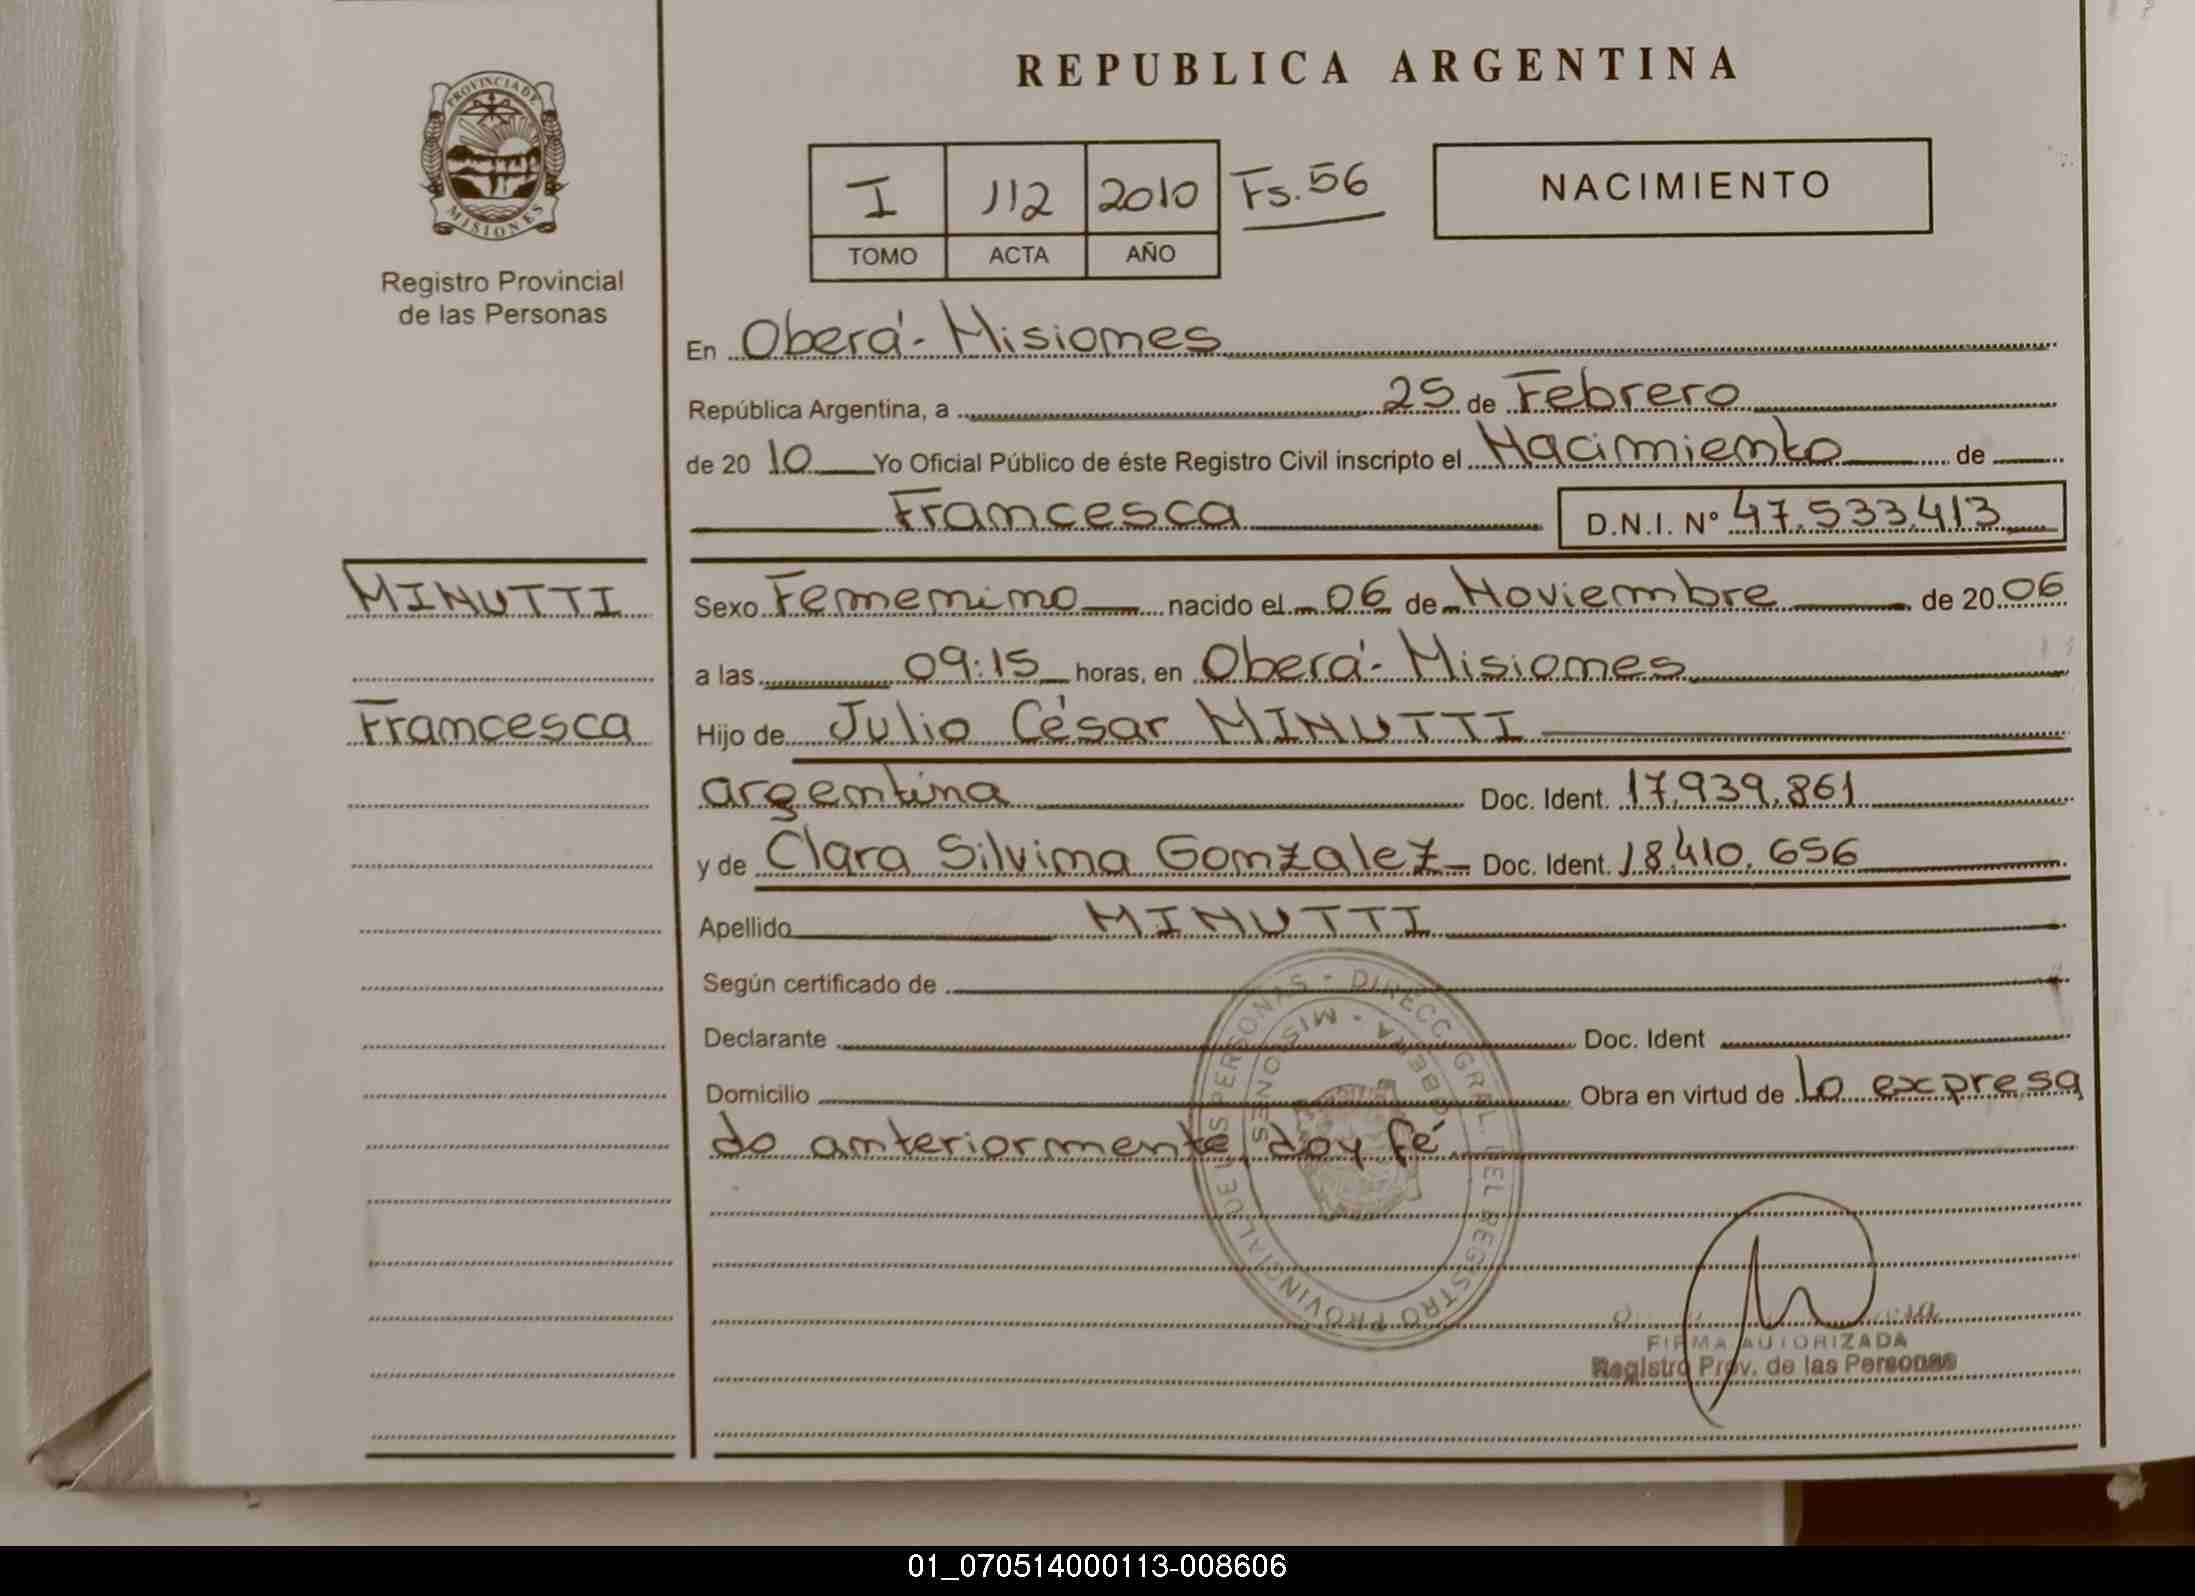 REPUBLICA ARGENTINA
PROVINCIA DE
MISIONES
Registro Provincial
de las Personas
I 112 2010 Fs. 56
TOMO ACTA AÑO
NACIMIENTO
En Oberá - Misiones
República Argentina, a 25 de Febrero
de 20 10 Yo Oficial Público de éste Registro Civil inscripto el Nacimiento de
Francesca D.N.I. Nº 47.533.413
MINUTTI
Francesca
Sexo Femenino nacido el 06 de Noviembre de 20 06
a las 09:15 horas, en Oberá - Misiones
Hijo de Julio César MINUTTI
argentina Doc. Ident. 17.939.861
y de Clara Silvina Gonzalez Doc. Ident. 18.410.656
Apellido MINUTTI
Según certificado de
Declarante Doc. Ident
Domicilio Obra en virtud de lo expresa
do anteriormente, doy fé.
DIRECC. GRAL. DEL REGISTRO PROVINCIAL DE LAS PERSONAS
OBERA - MISIONES
FIRMA AUTORIZADA
Registro Prov. de las Personas
01_070514000113-008606